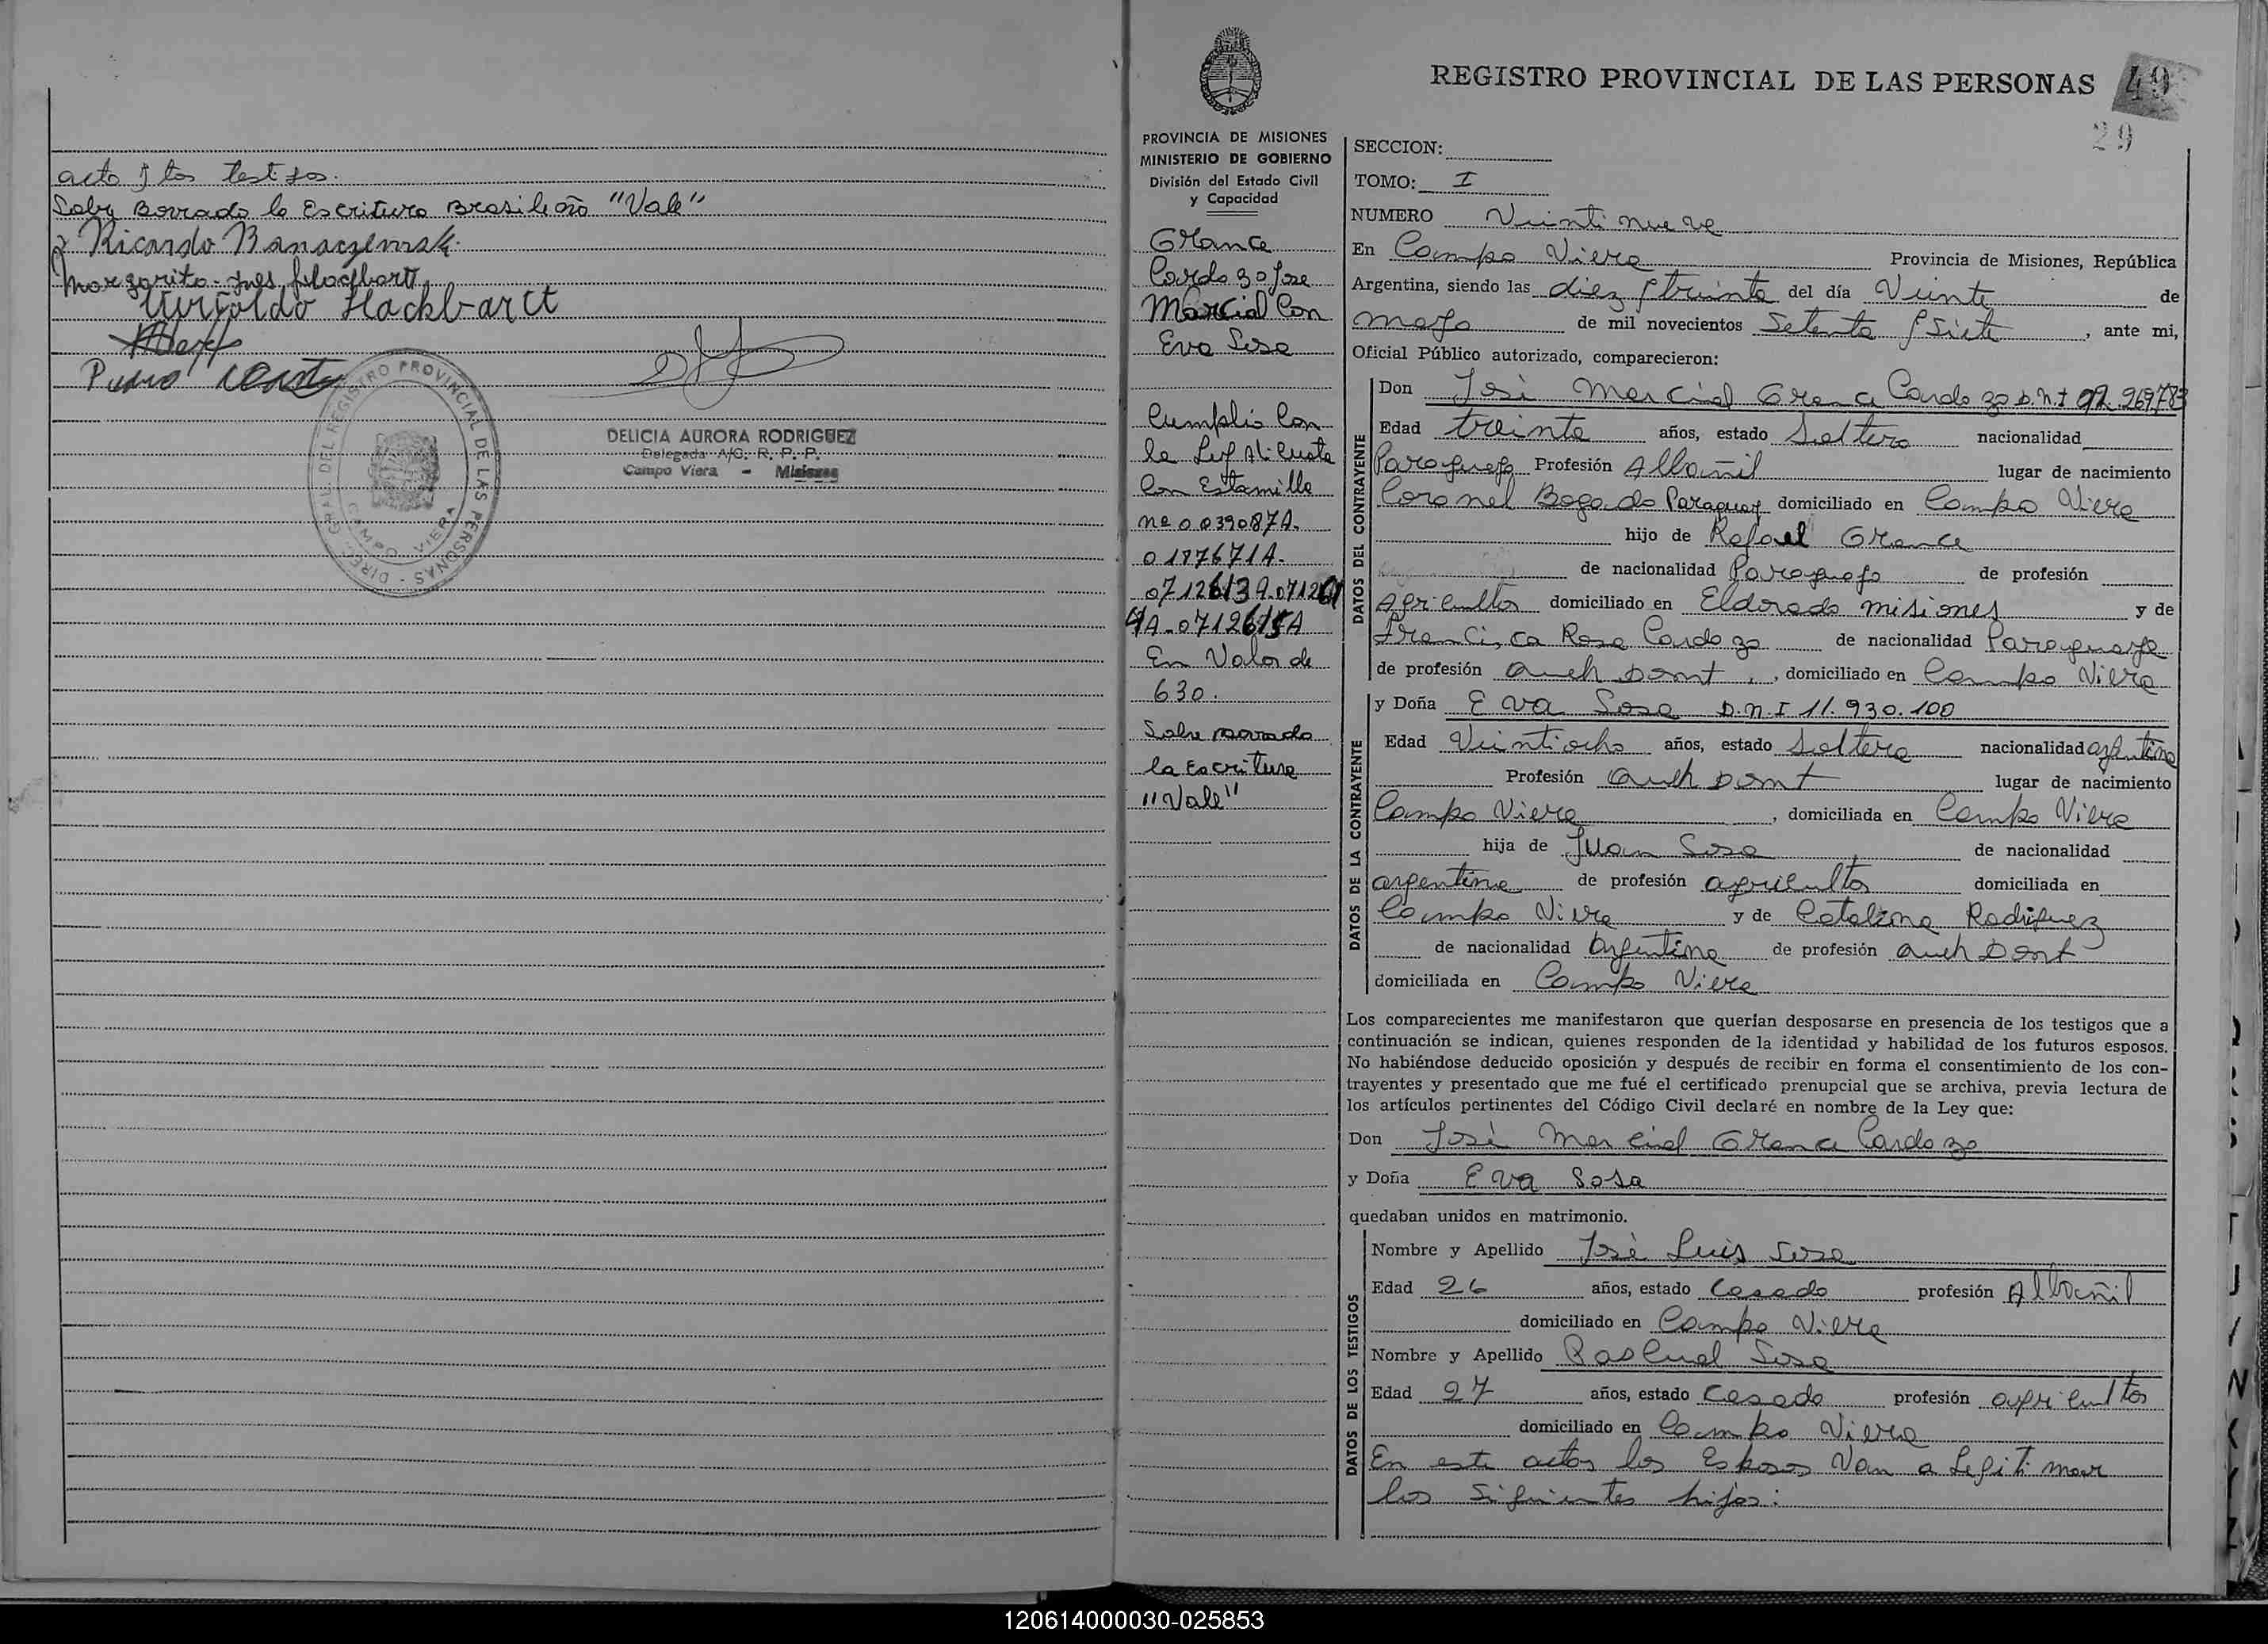 acto y los testgos.
Sobre Borrado la Escritura Brasileño "Vale"
Ricardo
Margarita Ines Hackbart
Hackbarct
Pedro
DIREC. GRAL. DEL REGISTRO PROVINCIAL DE LAS PERSONAS -
CAMPO VIERA
DELICIA AURORA RODRIGUEZ
Delegada A/C. R. P. P.
Campo Viera - Misiones
REGISTRO PROVINCIAL DE LAS PERSONAS
49
29
PROVINCIA DE MISIONES
MINISTERIO DE GOBIERNO
División del Estado Civil
y Capacidad
Grance
Cardozo Jose
Marcial Con
Eva Sosa
Cumplio Con
la Ley
Con Estamilla
Nº 0039087A.
0187671A.
En Valor de
630.
Sobre borrado
la Escritura
"Vale"
SECCION:
TOMO: I
NUMERO Veintinueve
En Campo Viera Provincia de Misiones, República
Argentina, siendo las diez y treinta del día Veinte de
mayo de mil novecientos Setenta y Siete, ante mi,
Oficial Público autorizado, comparecieron:
DATOS DEL CONTRAYENTE
Don José Marcial Grance Cardozo D.N.I 92.269.783
Edad treinta años, estado Soltero nacionalidad
Paraguayo Profesión Albañil lugar de nacimiento
Coronel Bogado Paraguay domiciliado en Campo Viera
hijo de Rafael Grance
de nacionalidad Paraguayo de profesión
Agricultor domiciliado en Eldorado misiones y de
Francisca Rosa Cardozo de nacionalidad Paraguaya
de profesión Queh Domt, domiciliado en Campo Viera
DATOS DE LA CONTRAYENTE
y Doña Eva Sosa D.N.I 11.930.100
Edad Veintiocho años, estado Soltera nacionalidad argentina
Profesión Queh Domt lugar de nacimiento
Campo Viera, domiciliada en Campo Viera
hija de Juan Sosa de nacionalidad
argentino de profesión agricultor domiciliada en
Campo Viera y de Catalina Rodriguez
de nacionalidad Argentina de profesión Queh Domt
domiciliada en Campo Viera
Los comparecientes me manifestaron que querían desposarse en presencia de los testigos que a
continuación se indican, quienes responden de la identidad y habilidad de los futuros esposos.
No habiéndose deducido oposición y después de recibir en forma el consentimiento de los con-
trayentes y presentado que me fué el certificado prenupcial que se archiva, previa lectura de
los artículos pertinentes del Código Civil declaré en nombre de la Ley que:
Don José Marcial Grance Cardozo
y Doña Eva Sosa
quedaban unidos en matrimonio.
DATOS DE LOS TESTIGOS
Nombre y Apellido José Luis Sosa
Edad 26 años, estado Casado profesión Albañil
domiciliado en Campo Viera
Nombre y Apellido Pascual Sosa
Edad 27 años, estado Casado profesión agricultor
domiciliado en Campo Viera
En este actos los Esposos Van a Legitimar
los Siguientes hijos:
120614000030-025853